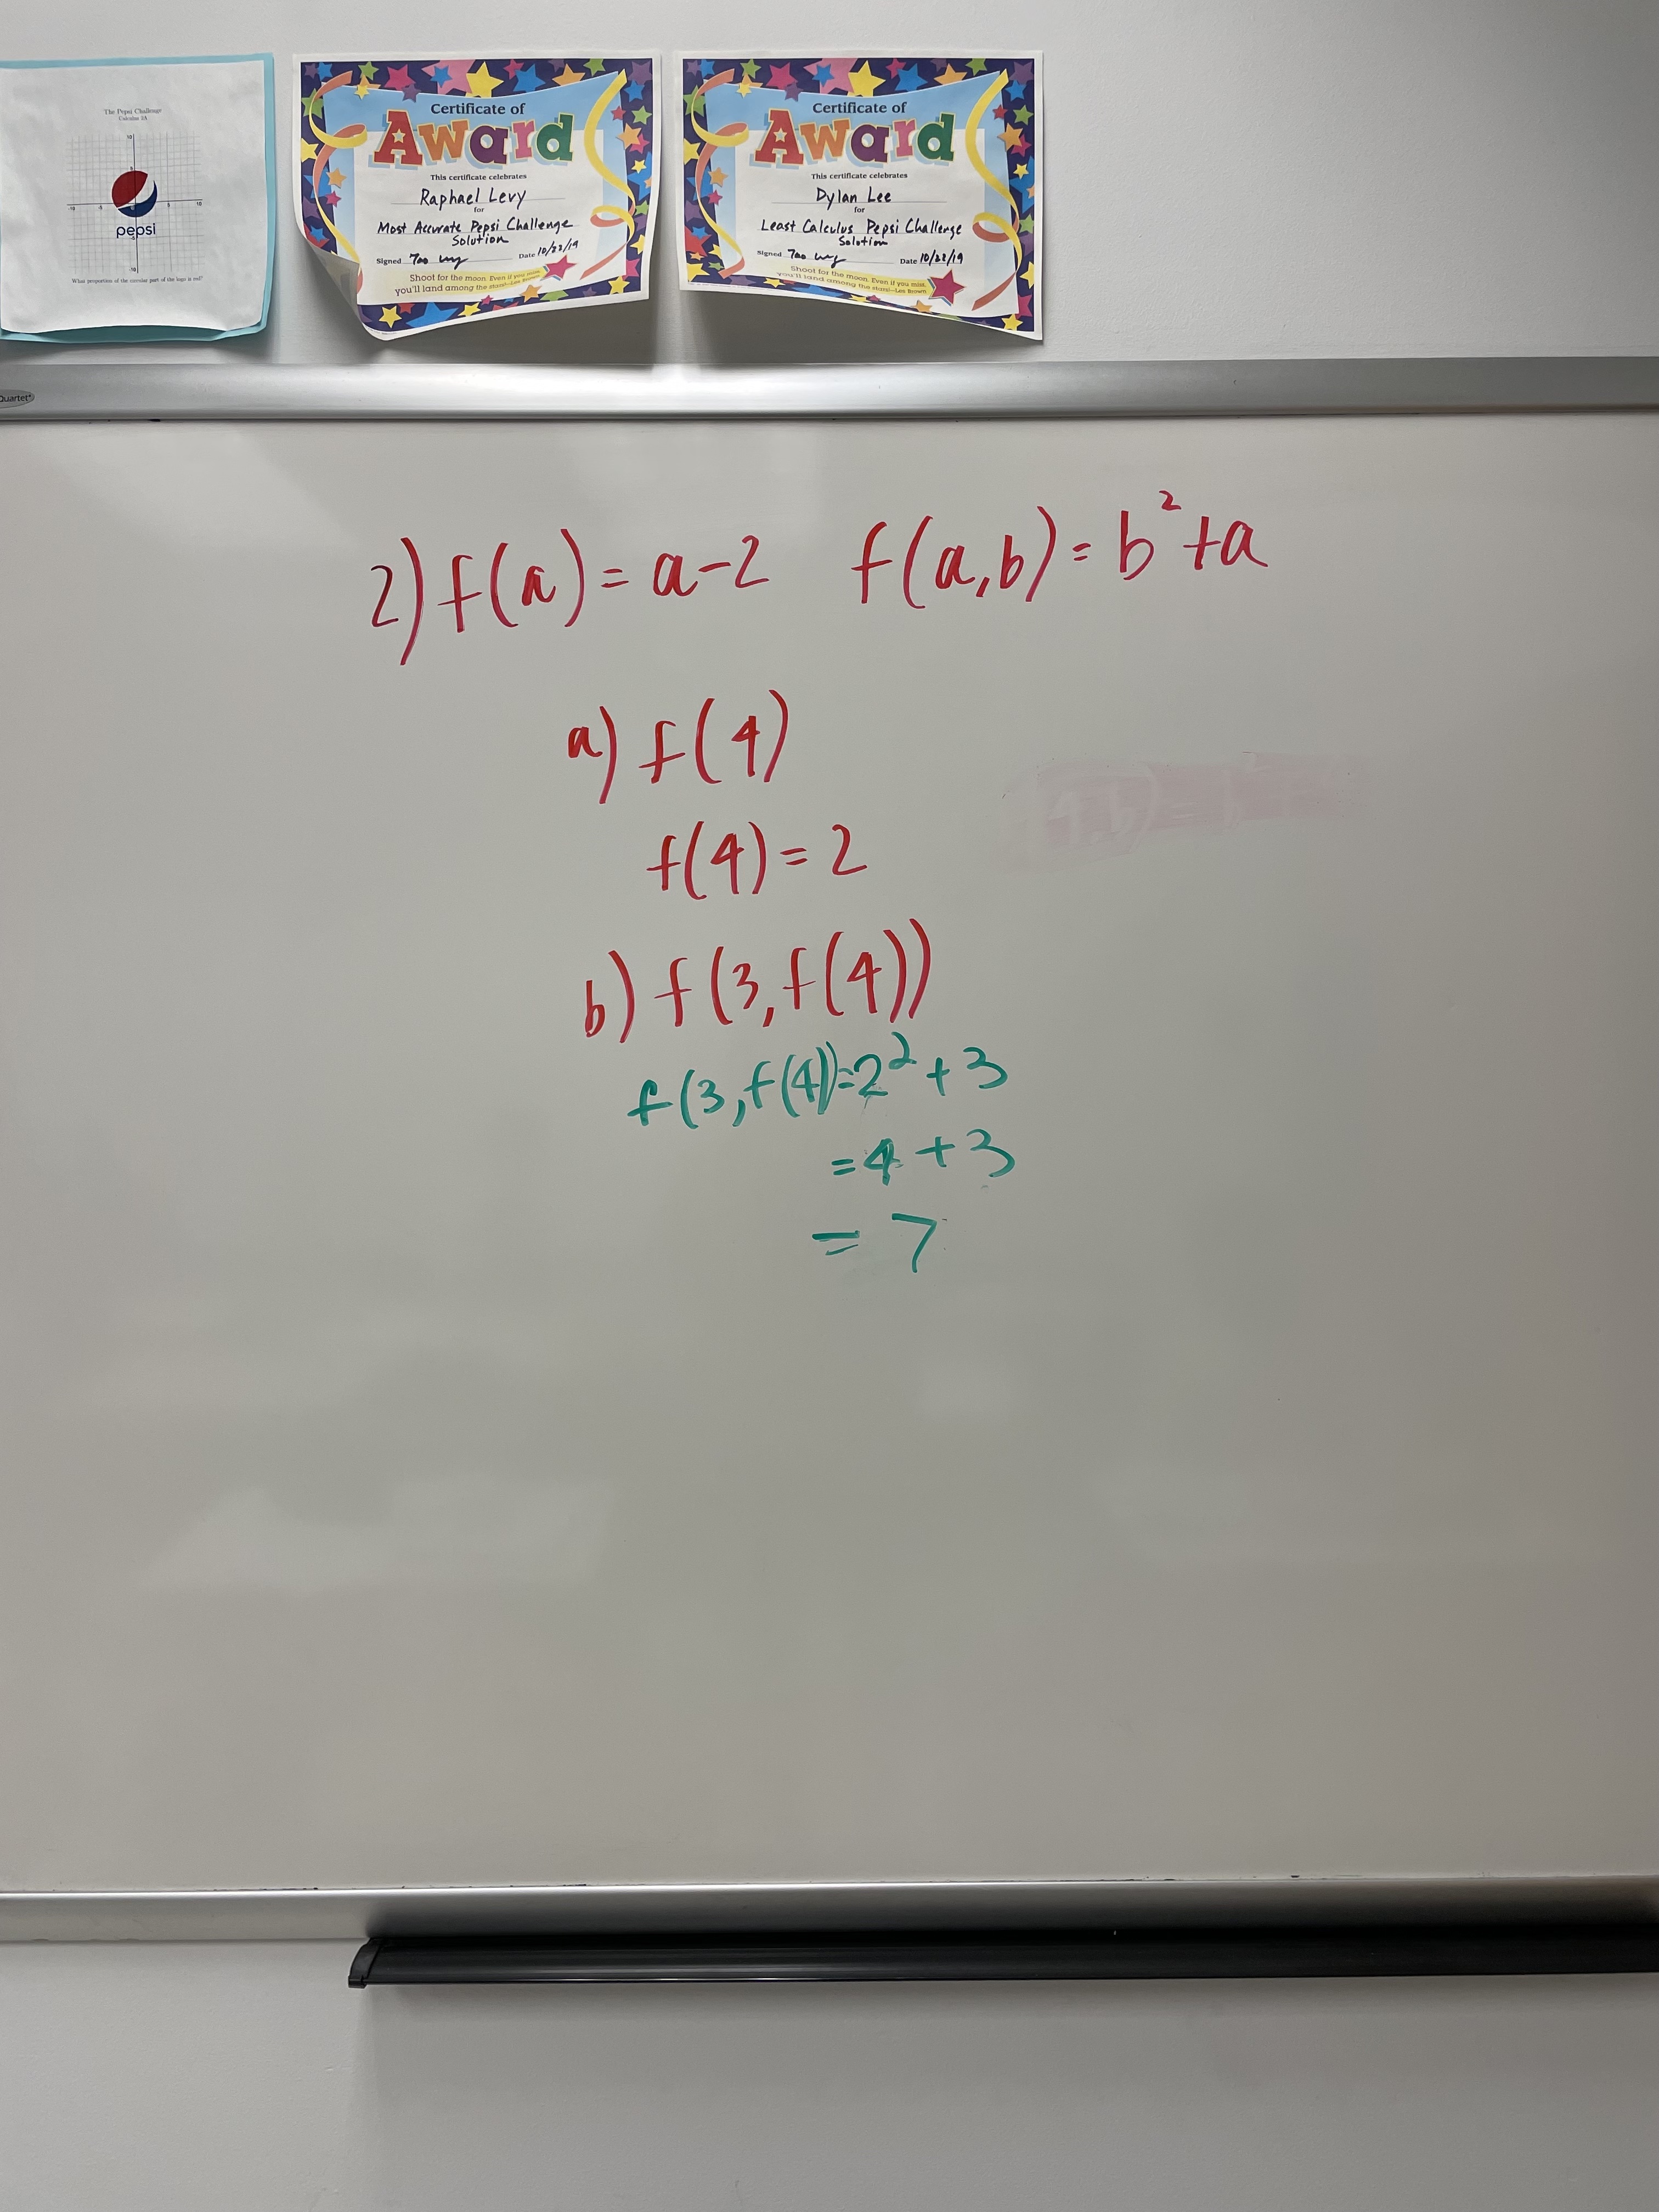 The Pepsi Challenge
Calculus 2A
10
5
-10
-5
5
10
pepsi
-5
-10
What proportion of the circular part of the logo is red?
Certificate of
Award
This certificate celebrates
Raphael Levy
for
Most Accurate Pepsi Challenge
Solution
Signed Date 10/22/19
Shoot for the moon. Even if you miss,
you'll land among the stars!—Les Brown
Certificate of
Award
This certificate celebrates
Dylan Lee
for
Least Calculus Pepsi Challenge
Solution
Signed Date 10/22/19
Shoot for the moon. Even if you miss,
you'll land among the stars!—Les Brown
Quartet
2) f(a) = a-2 f(a,b) = b² + a
a) f(4)
f(4) = 2
b) f(3, f(4))
f(3, f(4)) = 2² + 3
= 4 + 3
= 7